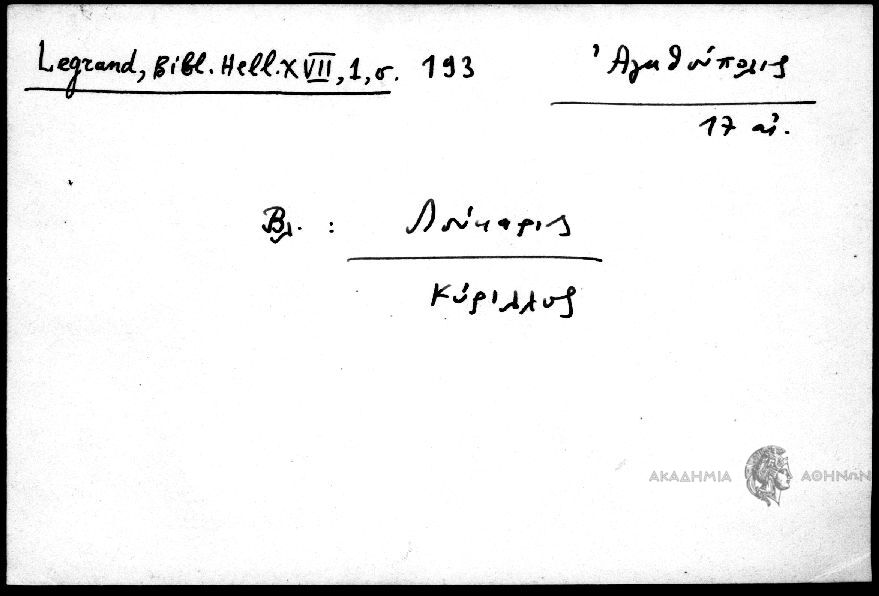 Legrand, Bibl. Hell. XVII, 1, σ. 193
Ἀγαθούπολις
17 αἰ.
Βλ. : Λούκαρις
Κύριλλος
ΑΚΑΔΗΜΙΑ ΑΘΗΝΩΝ